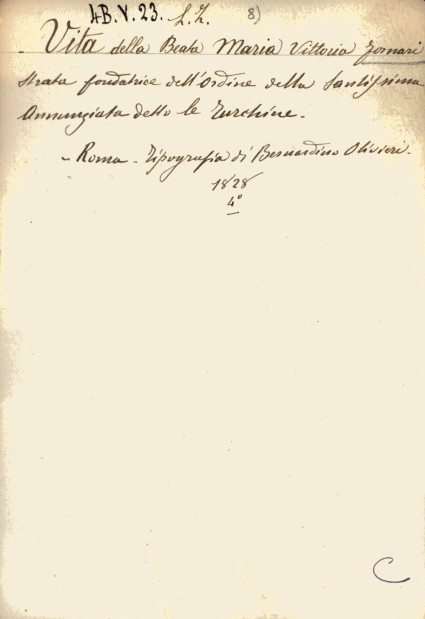 4B.V.23. L.Z. 8)
Vita della Beata Maria Vittoria Fornari
Strata fondatrice dell'Ordine della Santissima
Annunziata detto le Turchine.
- Roma - Tipografia di Bernardino Olivieri.
1828
4°
C